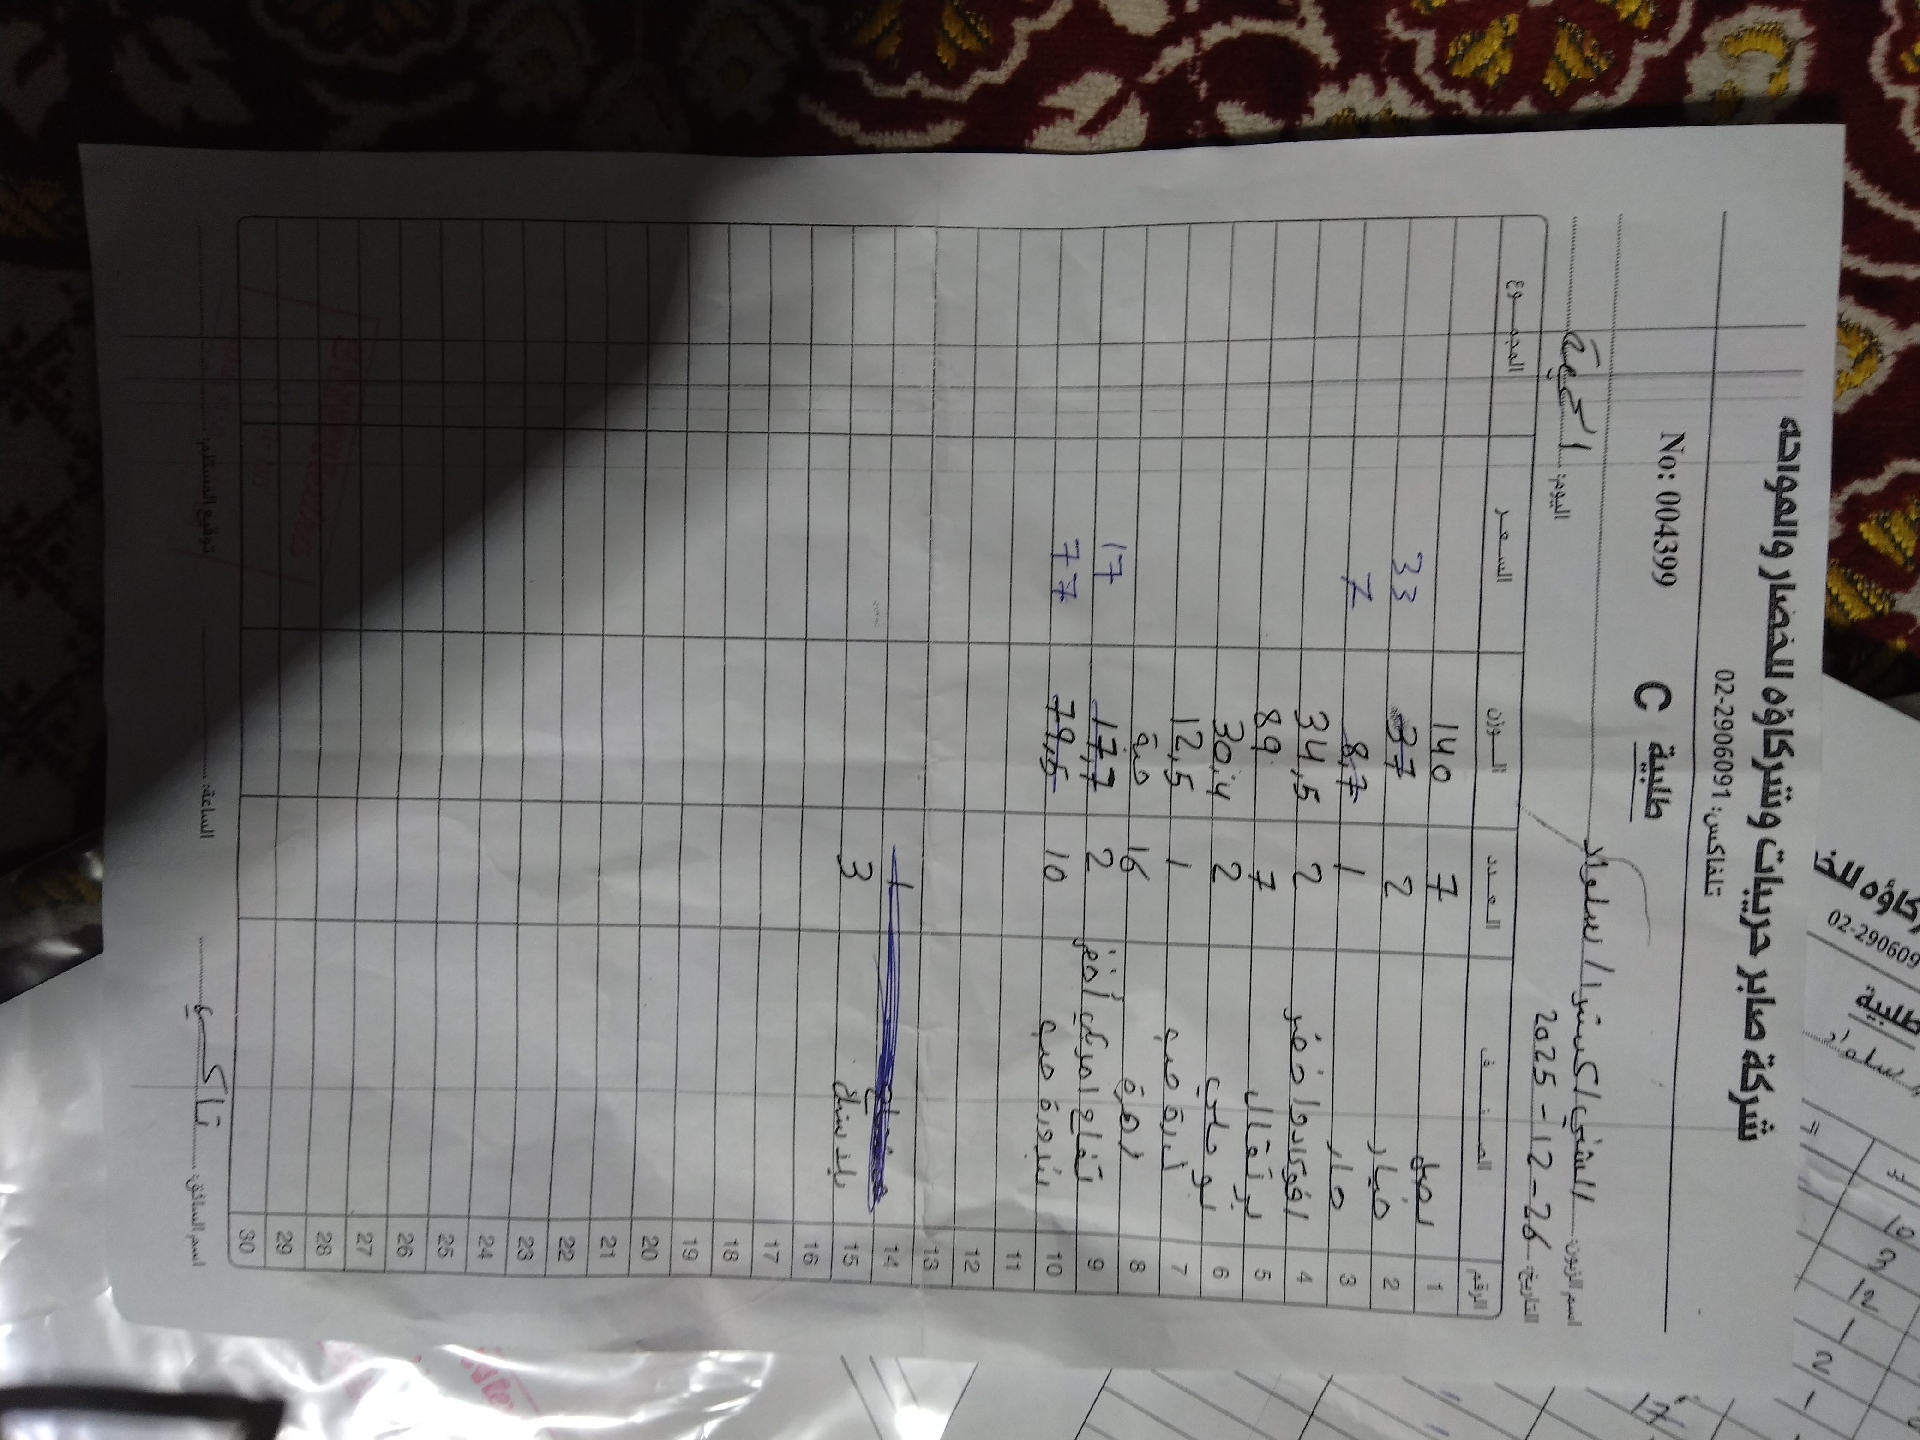 شركة صابر حريبات وشركاؤه للخضار والفواكه
تلفاكس: 02-2906091
No: 004399
C
طلبية
اسم الزبون: الشني اكسترا / سلواد
التاريخ: 26-12-2025
اليوم: الجمعة
الرقم الصنف العدد الوزن السعر المجموع
1 بصل 7 140
2 خيار 2 37 33
3 حار 1 8,7 7
4 افوكادو اخضر 2 34,5
5 برتقال 7 89
6 بوملي 2 30,4
7 1 12,5
8 16 حبة
9 تفاح امريكي أخضر 2 17,7 17
10 بندورة حب 10 79,5 77
11
12
13
14 1
15 بلاستيك 3
16
17
18
19
20
21
22
23
24
25
26
27
28
29
30
اسم السائق:
الساعة:
توقيع المستلم:
02-290609
طلبية
7
10
3
12
1
2
1
17